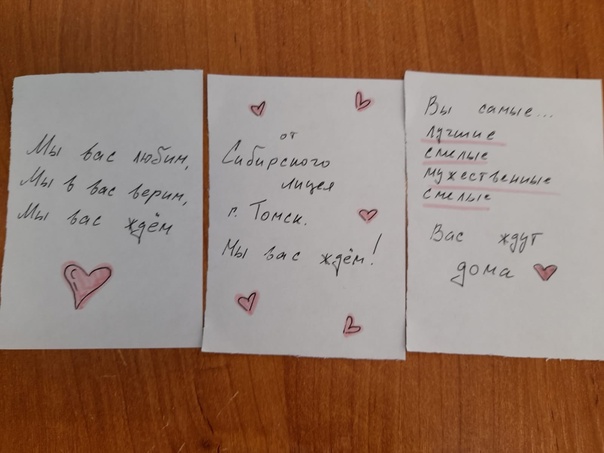 Мы вас любим,
Мы в вас верим,
Мы вас ждём
от
Сибирского
лицея
г. Томск.
Мы вас ждём!
Вы самые...
лучшие
смелые
мужественные
смелые
Вас ждут
дома